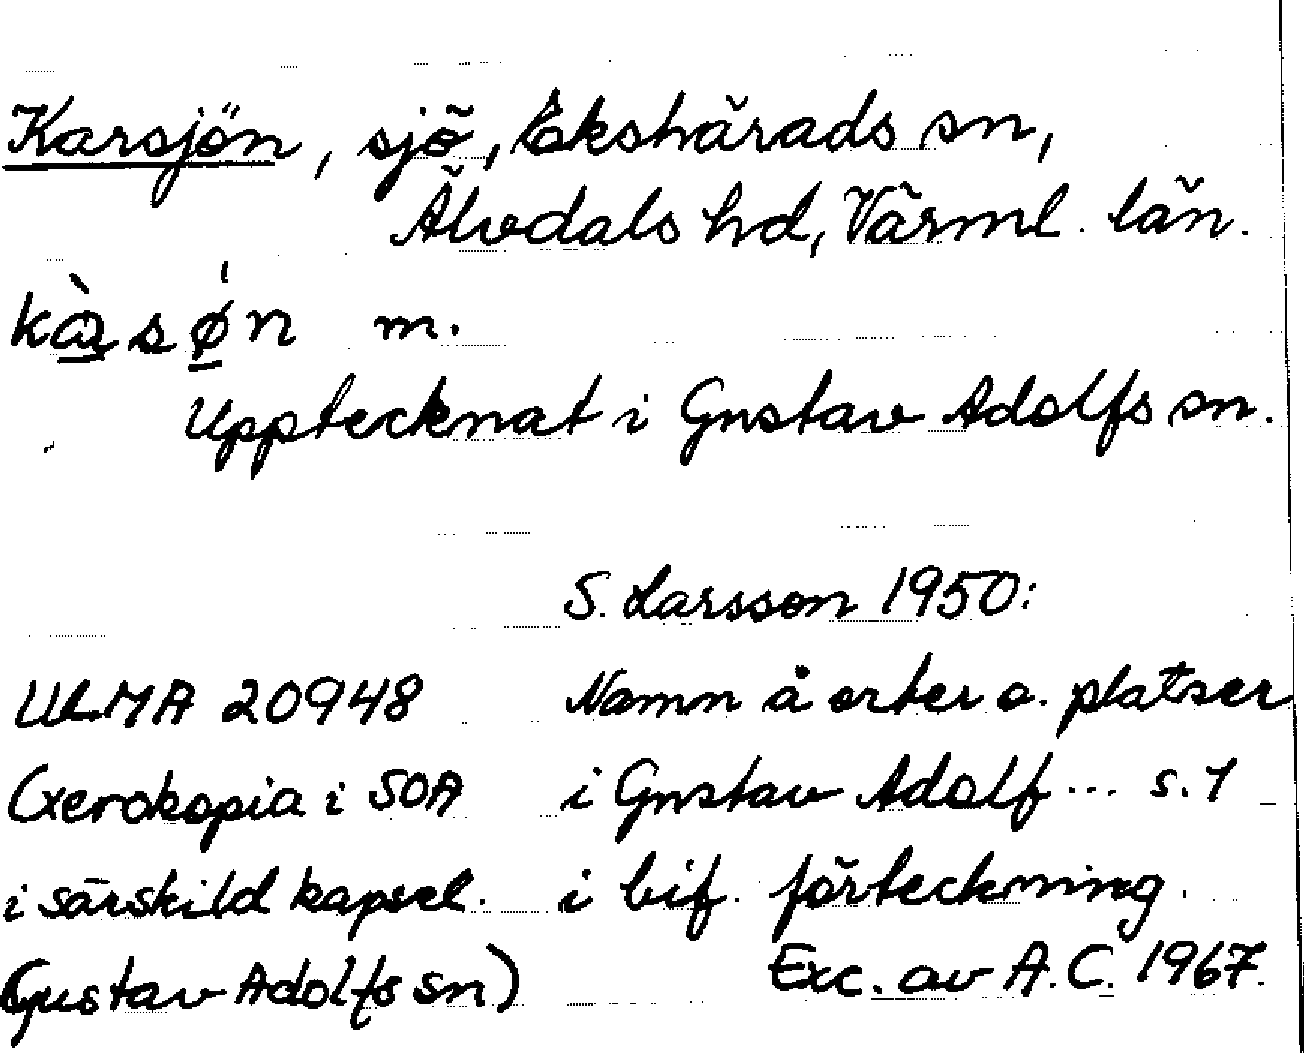 Karsjön, sjö, Ekshärads sn,
Älvdals hd, Värml. län.
m.
Upptecknat i Gustav Adolfs sn.
S. Larsson 1950:
ULMA 20948 Namn å orter o. platser
(xerokopia i SOA i Gustav Adolf... s. 1
i särskild kapsel. i bif. förteckning.
Gustav Adolfs sn) Exc. av A.C. 1967.